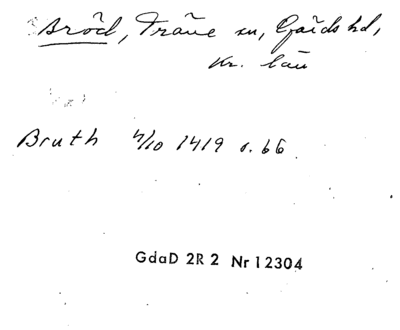 Bröd, Träne sn, Gärds hd,
Kr. län
Bruth 4/10 1419 s. 66
GdaD 2R 2 Nr 12304